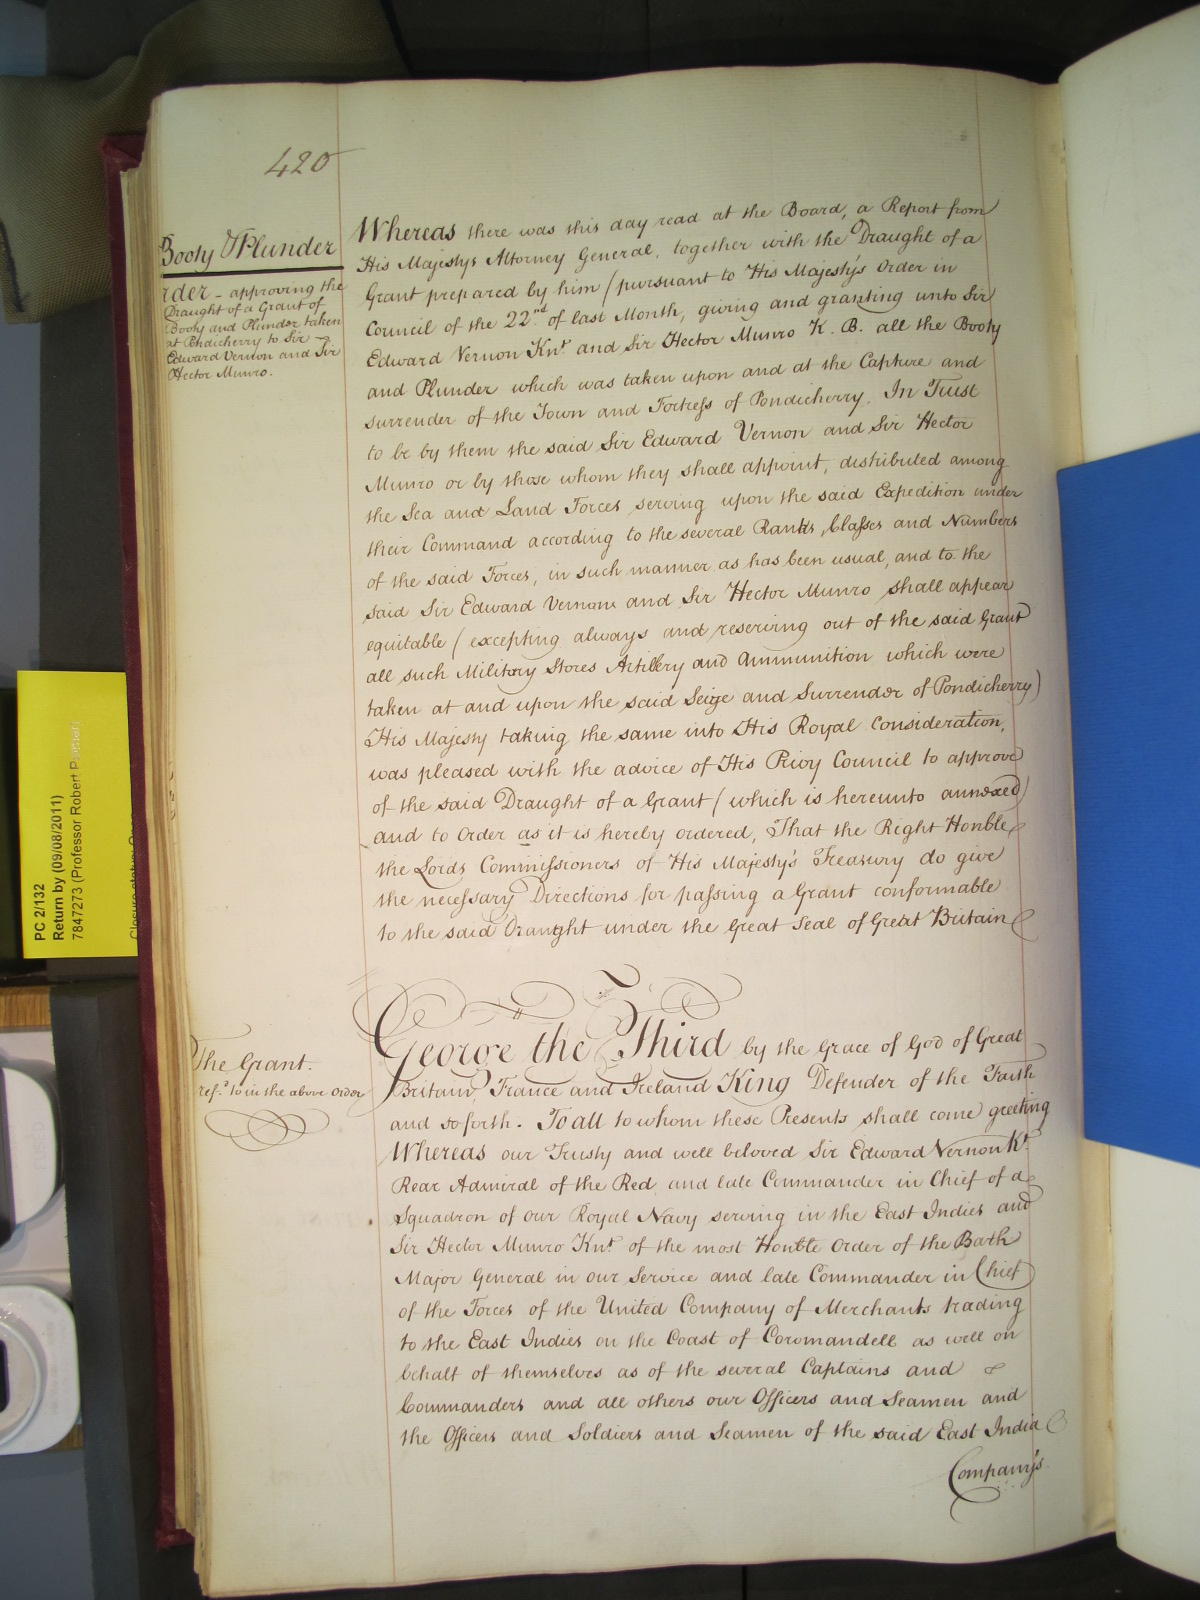 420
Booty & Plunder
rder - approving the
Draught of a Grant of
Booty and Plunder taken
at Pondicherry to Sir
Edward Vernon and Sir
Hector Munro.
Whereas there was this day read at the Board, a Report from
His Majestys Attorney General, together with the Draught of a
Grant prepared by him (pursuant to His Majesty's Order in
Council of the 22nd of last Month, giving and granting unto Sir
Edward Vernon Knt and Sir Hector Munro K. B. all the Booty
and Plunder which was taken upon and at the Capture and
surrender of the Town and Fortress of Pondicherry. In Trust
to be by them the said Sir Edward Vernon and Sir Hector
Munro or by those whom they shall appoint, distributed among
the Sea and Land Forces serving upon the said Expedition under
their Command according to the several Ranks, Classes and Numbers
of the said Forces, in such manner as has been usual, and to the
said Sir Edward Vernon and Sir Hector Munro shall appear
equitable (excepting always and reserving out of the said Grant
all such Military Stores Artillery and Ammunition which were
taken at and upon the said Seige and Surrender of Pondicherry)
His Majesty taking the same into His Royal Consideration,
was pleased with the advice of His Privy Council to approve
of the said Draught of a Grant (which is hereunto annexed)
and to Order as it is hereby ordered, That the Right Honble
the Lords Commissioners of His Majesty's Treasury do give
the necessary Directions for passing a Grant conformable
to the said Draught under the Great Seal of Great Britain
The Grant.
ref.d to in the above Order
George the Third by the Grace of God of Great
Britain, France and Ireland King Defender of the Faith
and so forth. To all to whom these Presents shall come greeting
Whereas our Trusty and well beloved Sir Edward Vernon Kt.
Rear Admiral of the Red and late Commander in Chief of a
Squadron of our Royal Navy serving in the East Indies and
Sir Hector Munro Knt of the most Honble Order of the Bath
Major General in our Service and late Commander in Chief
of the Forces of the United Company of Merchants trading
to the East Indies on the Coast of Coromandell as well on
behalf of themselves as of the several Captains and
Commanders and all others our Officers and Seamen and
the Officers and Soldiers and Seamen of the said East India
Company's
PC 2/132
Return by (09/08/2011)
7847273 (Professor Robert